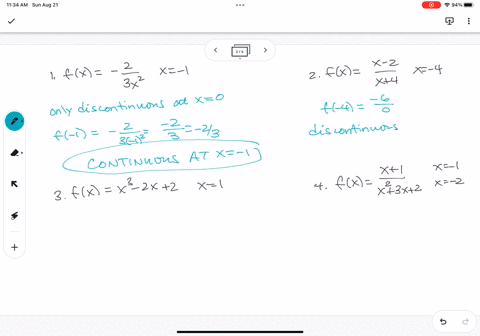 11:34 AM Sun Aug 21
94%
1. f(x) = -2/3x² x=-1
only discontinuous at x=0
f(-1) = -2/3(-1)² = -2/3 = -2/3
CONTINUOUS AT x=-1
2. f(x) = x-2/x+4 x=-4
f(-4) = -6/0
discontinuous
3. f(x) = x³-2x+2 x=1
4. f(x) = x+1/x²+3x+2 x=-1
x=-2